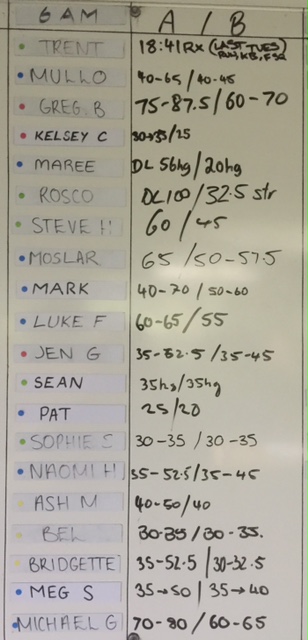 6 AM A / B
TRENT 18:41 Rx (LAST TUES)
MULLO 40-65/40-45
GREG. B 75-87.5/60-70
KELSEY C 30→35/25
MAREE DL 56kg/20kg
ROSCO DL100/32.5 str
STEVE H 60/45
MOSLAR 65/50-57.5
MARK 40-70/50-60
LUKE F 60-65/55
JEN G 35-52.5/35-45
SEAN 35kg/35kg
PAT 25/20
SOPHIE S 30-35/30-35
NAOMI H 35-52.5/35-45
ASH M 40-50/40
BEL 30-35/30-35.
BRIDGETTE 35-52.5/30-32.5
MEG S 35→50/35→40
MICHAEL G 70-80/60-65